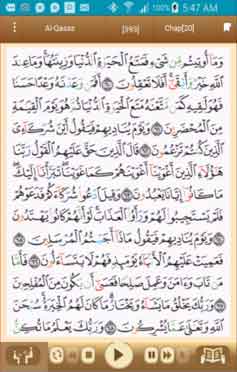 5:47 AM
Al-Qasas [393] Chap[20]
وَمَا أُوتِيتُم مِّن شَيْءٍ فَمَتَاعُ الْحَيَاةِ الدُّنْيَا وَزِينَتُهَا وَمَا عِندَ
اللَّهِ خَيْرٌ وَأَبْقَىٰ أَفَلَا تَعْقِلُونَ أَفَمَن وَعَدْنَاهُ وَعْدًا حَسَنًا
فَهُوَ لَاقِيهِ كَمَن مَّتَّعْنَاهُ مَتَاعَ الْحَيَاةِ الدُّنْيَا ثُمَّ هُوَ يَوْمَ الْقِيَامَةِ
مِنَ الْمُحْضَرِينَ وَيَوْمَ يُنَادِيهِمْ فَيَقُولُ أَيْنَ شُرَكَائِيَ
الَّذِينَ كُنتُمْ تَزْعُمُونَ قَالَ الَّذِينَ حَقَّ عَلَيْهِمُ الْقَوْلُ رَبَّنَا
هَٰؤُلَاءِ الَّذِينَ أَغْوَيْنَا أَغْوَيْنَاهُمْ كَمَا غَوَيْنَا تَبَرَّأْنَا إِلَيْكَ
مَا كَانُوا إِيَّانَا يَعْبُدُونَ وَقِيلَ ادْعُوا شُرَكَاءَكُمْ فَدَعَوْهُمْ
فَلَمْ يَسْتَجِيبُوا لَهُمْ وَرَأَوُا الْعَذَابَ لَوْ أَنَّهُمْ كَانُوا يَهْتَدُونَ
وَيَوْمَ يُنَادِيهِمْ فَيَقُولُ مَاذَا أَجَبْتُمُ الْمُرْسَلِينَ
فَعَمِيَتْ عَلَيْهِمُ الْأَنبَاءُ يَوْمَئِذٍ فَهُمْ لَا يَتَسَاءَلُونَ فَأَمَّا
مَن تَابَ وَآمَنَ وَعَمِلَ صَالِحًا فَعَسَىٰ أَن يَكُونَ مِنَ الْمُفْلِحِينَ
وَرَبُّكَ يَخْلُقُ مَا يَشَاءُ وَيَخْتَارُ مَا كَانَ لَهُمُ الْخِيَرَةُ سُبْحَانَ
اللَّهِ وَتَعَالَىٰ عَمَّا يُشْرِكُونَ وَرَبُّكَ يَعْلَمُ مَا تُكِنُّ